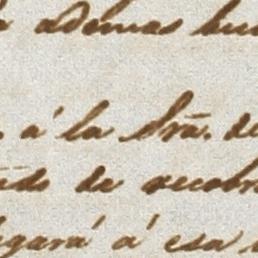 ademas
á la Sra. de
de recobr
gará á esa